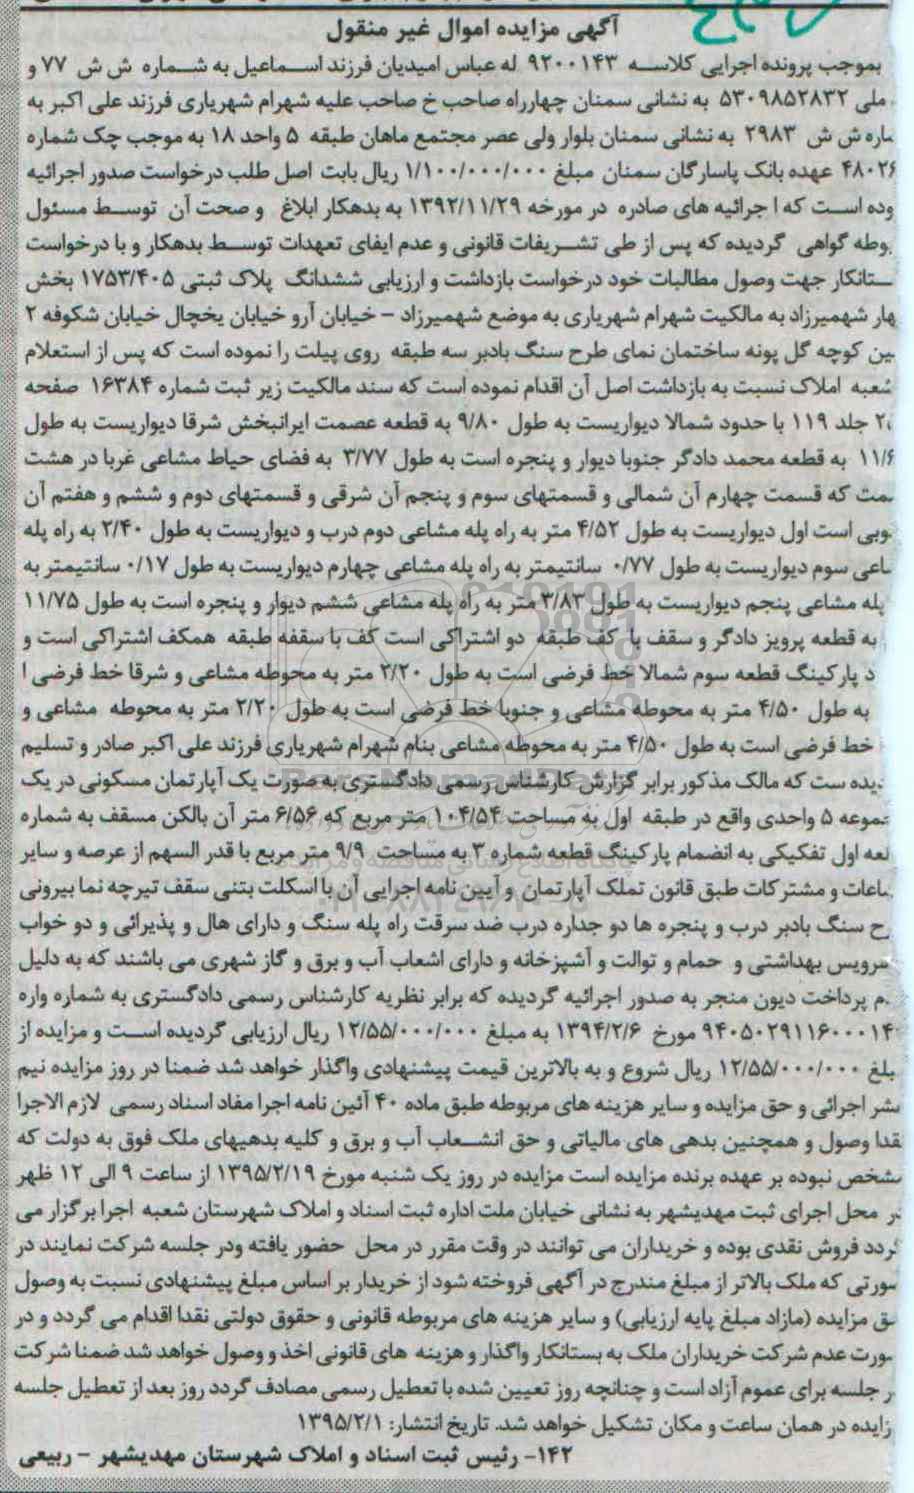 آگهی مزایده اموال غیر منقول
بموجب پرونده اجرایی کلاسه ۹۲۰۰۱۴۳ له عباس امیدیان فرزند اسماعیل به شماره ش ش ۷۷ و
ملی ۵۳۰۹۸۵۲۸۳۲ به نشانی سمنان چهارراه صاحب خ صاحب علیه شهرام شهریاری فرزند علی اکبر به
ماره ش ش ۲۹۸۳ به نشانی سمنان بلوار ولی عصر مجتمع ماهان طبقه ۵ واحد ۱۸ به موجب چک شماره
۴۸۰۲۶ عهده بانک پاسارگان سمنان مبلغ ۱/۱۰۰/۰۰۰/۰۰۰ ریال بابت اصل طلب درخواست صدور اجرائیه
وده است که ا جرائیه های صادره در مورخه ۱۳۹۲/۱۱/۲۹ به بدهکار ابلاغ و صحت آن توسط مسئول
بوطه گواهی گردیده که پس از طی تشریفات قانونی و عدم ایفای تعهدات توسط بدهکار و با درخواست
ستانکار جهت وصول مطالبات خود درخواست بازداشت و ارزیابی ششدانگ پلاک ثبتی ۱۷۵۳/۴۰۵ بخش
هار شهمیرزاد به مالکیت شهرام شهریاری به موضع شهمیرزاد – خیابان آرو خیابان یخچال خیابان شکوفه ۲
ین کوچه گل پونه ساختمان نمای طرح سنگ بادبر سه طبقه روی پیلت را نموده است که پس از استعلام
شعبه املاک نسبت به بازداشت اصل آن اقدام نموده است که سند مالکیت زیر ثبت شماره ۱۶۳۸۴ صفحه
جلد ۱۱۹ با حدود شمالا دیواریست به طول ۹/۸۰ به قطعه عصمت ایرانبخش شرقا دیواریست به طول
۱۱/۶ به قطعه محمد دادگر جنوبا دیوار و پنجره است به طول ۳/۷۷ به فضای حیاط مشاعی غربا در هشت
مت که قسمت چهارم آن شمالی و قسمتهای سوم و پنجم آن شرقی و قسمتهای دوم و ششم و هفتم آن
وبی است اول دیواریست به طول ۴/۵۲ متر به راه پله مشاعی دوم درب و دیواریست به طول ۲/۴۰ به راه پله
اعی سوم دیواریست به طول ۰/۷۷ سانتیمتر به راه پله مشاعی چهارم دیواریست به طول ۰/۱۷ سانتیمتر به
پله مشاعی پنجم دیواریست به طول ۳/۸۳ متر به راه پله مشاعی ششم دیوار و پنجره است به طول ۱۱/۷۵
به قطعه پرویز دادگر و سقف با کف طبقه دو اشتراکی است کف با سقفه طبقه همکف اشتراکی است و
د پارکینگ قطعه سوم شمالا خط فرضی است به طول ۲/۲۰ متر به محوطه مشاعی و شرقا خط فرضی ا
به طول ۴/۵۰ متر به محوطه مشاعی و جنوبا خط فرضی است به طول ۲/۲۰ متر به محوطه مشاعی و
خط فرضی است به طول ۴/۵۰ متر به محوطه مشاعی بنام شهرام شهریاری فرزند علی اکبر صادر و تسلیم
دیده ست که مالک مذکور برابر گزارش کارشناس رسمی دادگستری به صورت یک آپارتمان مسکونی در یک
جموعه ۵ واحدی واقع در طبقه اول به مساحت ۱۰۴/۵۴ متر مربع که ۶/۵۶ متر آن بالکن مسقف به شماره
لعه اول تفکیکی به انضمام پارکینگ قطعه شماره ۳ به مساحت ۹/۹ متر مربع با قدر السهم از عرصه و سایر
ماعات و مشترکات طبق قانون تملک آپارتمان و آیین نامه اجرایی آن با اسکلت بتنی سقف تیرچه نما بیرونی
رح سنگ بادبر درب و پنجره ها دو جداره درب ضد سرقت راه پله سنگ و دارای هال و پذیرائی و دو خواب
سرویس بهداشتی و حمام و توالت و آشپزخانه و دارای اشعاب آب و برق و گاز شهری می باشند که به دلیل
دم پرداخت دیون منجر به صدور اجرائیه گردیده که برابر نظریه کارشناس رسمی دادگستری به شماره واره
۹۴۰۵۰۲۹۱۱۶۰۰۰۱۴ مورخ ۱۳۹۴/۲/۶ به مبلغ ۱۲/۵۵/۰۰۰/۰۰۰ ریال ارزیابی گردیده است و مزایده از
بلغ ۱۲/۵۵/۰۰۰/۰۰۰ ریال شروع و به بالاترین قیمت پیشنهادی واگذار خواهد شد ضمنا در روز مزایده نیم
شر اجرائی و حق مزایده و سایر هزینه های مربوطه طبق ماده ۴۰ آئین نامه اجرا مفاد اسناد رسمی لازم الاجرا
قدا وصول و همچنین بدهی های مالیاتی و حق انشعاب آب و برق و کلیه بدهیهای ملک فوق به دولت که
شخص نبوده بر عهده برنده مزایده است مزایده در روز یک شنبه مورخ ۱۳۹۵/۲/۱۹ از ساعت ۹ الی ۱۲ ظهر
در محل اجرای ثبت مهدیشهر به نشانی خیابان ملت اداره ثبت اسناد و املاک شهرستان شعبه اجرا برگزار می
گردد فروش نقدی بوده و خریداران می توانند در وقت مقرر در محل حضور یافته ودر جلسه شرکت نمایند در
سورتی که ملک بالاتر از مبلغ مندرج در آگهی فروخته شود از خریدار بر اساس مبلغ پیشنهادی نسبت به وصول
ق مزایده (مازاد مبلغ پایه ارزیابی) و سایر هزینه های مربوطه قانونی و حقوق دولتی نقدا اقدام می گردد و در
سورت عدم شرکت خریداران ملک به بستانکار واگذار و هزینه های قانونی اخذ و وصول خواهد شد ضمنا شرکت
ر جلسه برای عموم آزاد است و چنانچه روز تعیین شده با تعطیل رسمی مصادف گردد روز بعد از تعطیل جلسه
زایده در همان ساعت و مکان تشکیل خواهد شد. تاریخ انتشار: ۱۳۹۵/۲/۱
۱۴۲- رئیس ثبت اسناد و املاک شهرستان مهدیشهر – ربیعی